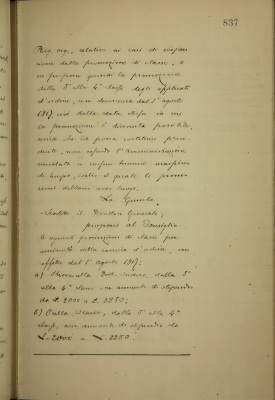 837
Reg. org., relativo ai casi di
zione dalla promozione di classe, e
si propone quindi la promozione
dalla 5ª alla 4ª classe degli applicati
d'ordine, con decorrenza dal 1º agosto
1917, cioè dalla data stessa in cui
la promozione è divenuta possibile,
senza che si possa costituire prece-
dente, non essendo l'Amministrazione
vincolata a nessun termine massimo
di tempo, entro il quale le promo-
zioni debbano aver luogo.
La Giunta,
Sentito il Direttore Generale,
propone al Consiglio
le seguenti promozioni di classe per
anzianità nella carriera d'ordine, con
effetto dal 1º agosto 1917:
a) Dott. dalla 5ª
alla 4ª classe con aumento di stipendio
da L. 2000 a L. 2250;
b) dalla 5ª alla 4ª
classe, con aumento di stipendio da
L. 2000 a L. 2250.